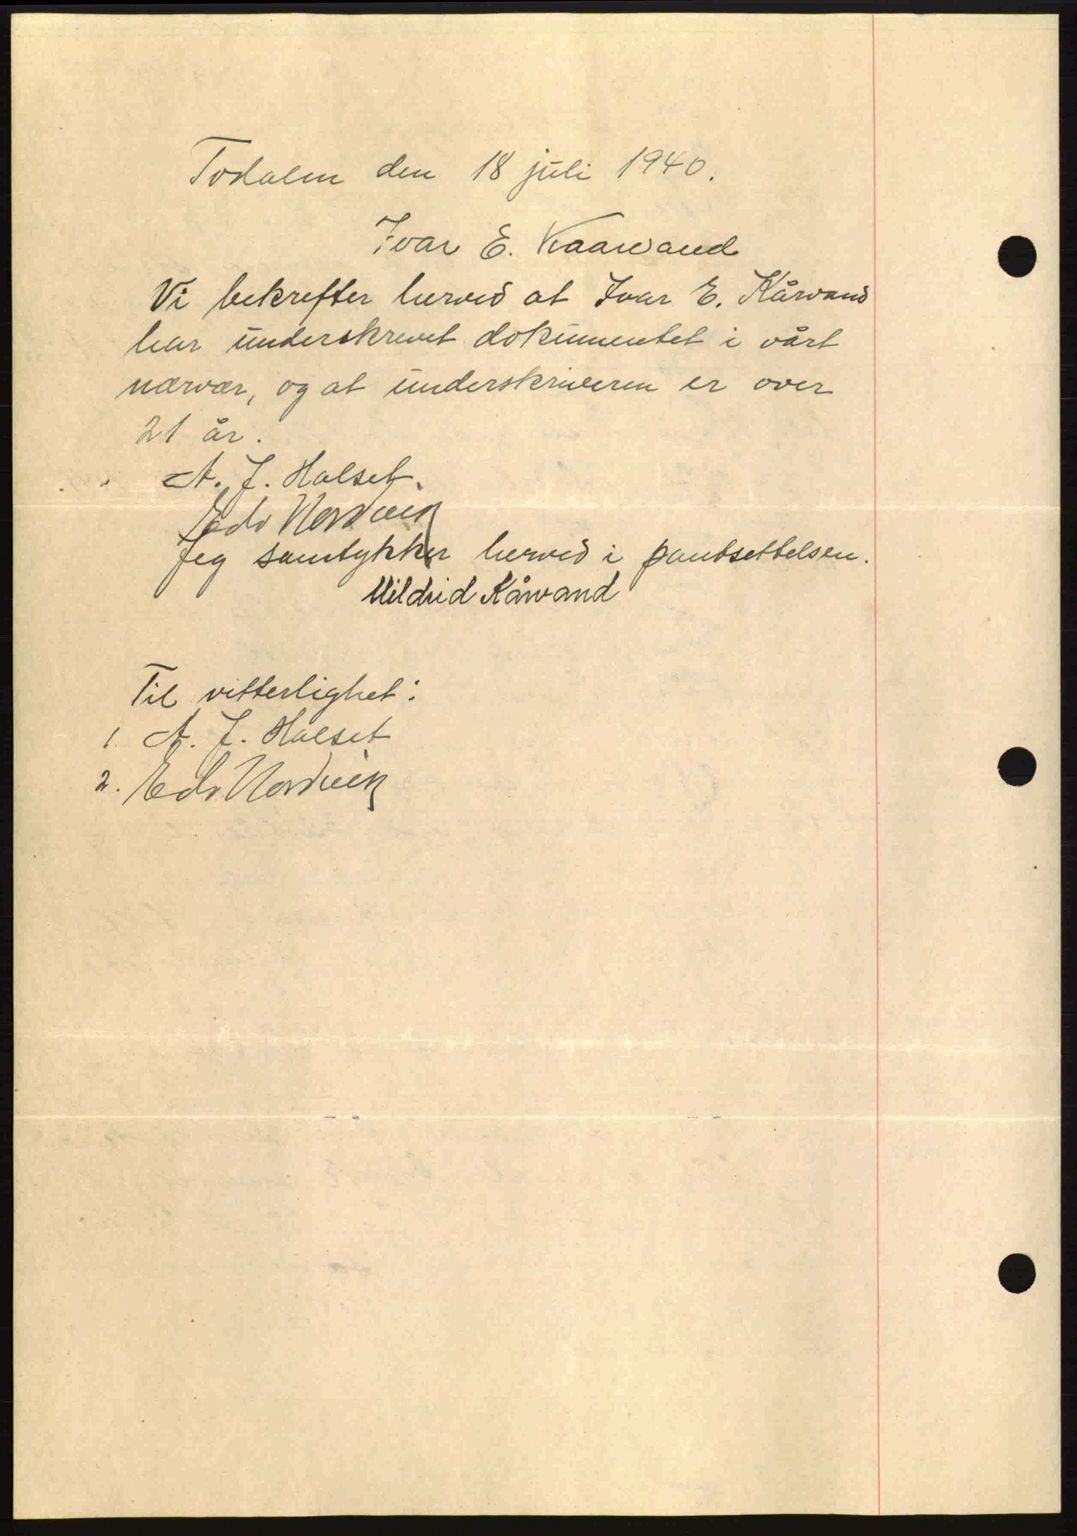 Todalen den 18 juli 1940.
Ivar E. Kaarvand
Vi bekrefter herved at Ivar E. Kårvand
har underskrevet dokumentet i vårt
nærvær, og at underskriveren er over
21 år.
A. J. Halset.
Edv Nordvik
Jeg samtykker herved i pantsettelsen.
Mildrid Kårvand
Til vitterlighet:
1. A. J. Halset
2. Edv Nordvik